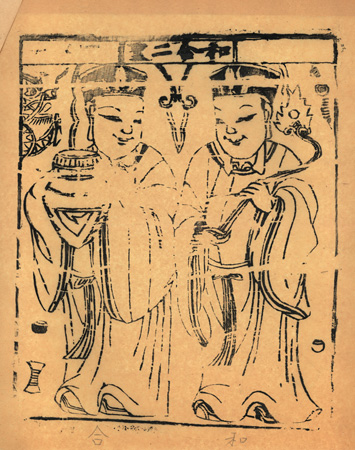 和合二
合 和